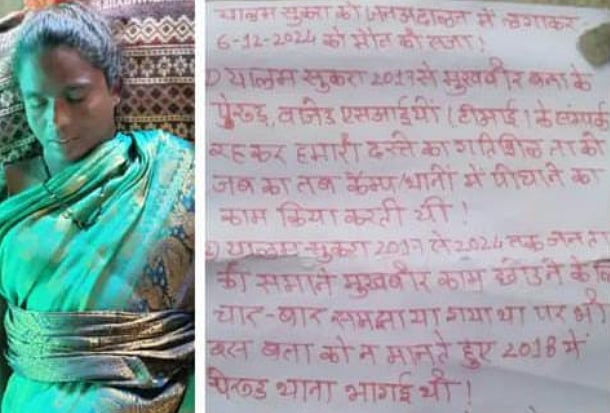 यालम सुकरा को जनअदालत में लगाकर
6-12-2024 को मौत की सजा!
1) यालम सुकरा 2017 से मुखबीर बना के
एसआईयों (डीआई) के संपर्क
रहकर हमारी दस्ते का गतिशिल ता को
जब का तब कैम्प/थानों में पोंचाने का
काम किया करती थी!
यालम सुकरा 2017 से 2024 तक जनता
की समाने मुखबीर काम छोडने के लि
चार-बार समझाया गया था पर भी
बस बता को न मानते हुए 2018 में
पेरुड थाना भागई थी!